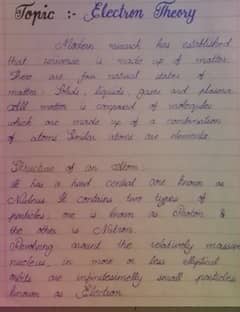 Topic :- Electron Theory
Modern research has established
that universe is made up of matter.
There are four natural states of
matter : Solids, liquids, gases and plasma.
All matter is composed of molecules
which are made up of a combination
of atoms. Similar atoms are elements.
Structure of an Atom.
It has a hard central core known as
Nucleus. It contains two types of
particles; one is known as Proton &
the other is Nutron.
Revolving around the relatively massive
nucleus, in more or less elliptical
orbits are infinitesimally small particles
known as Electron